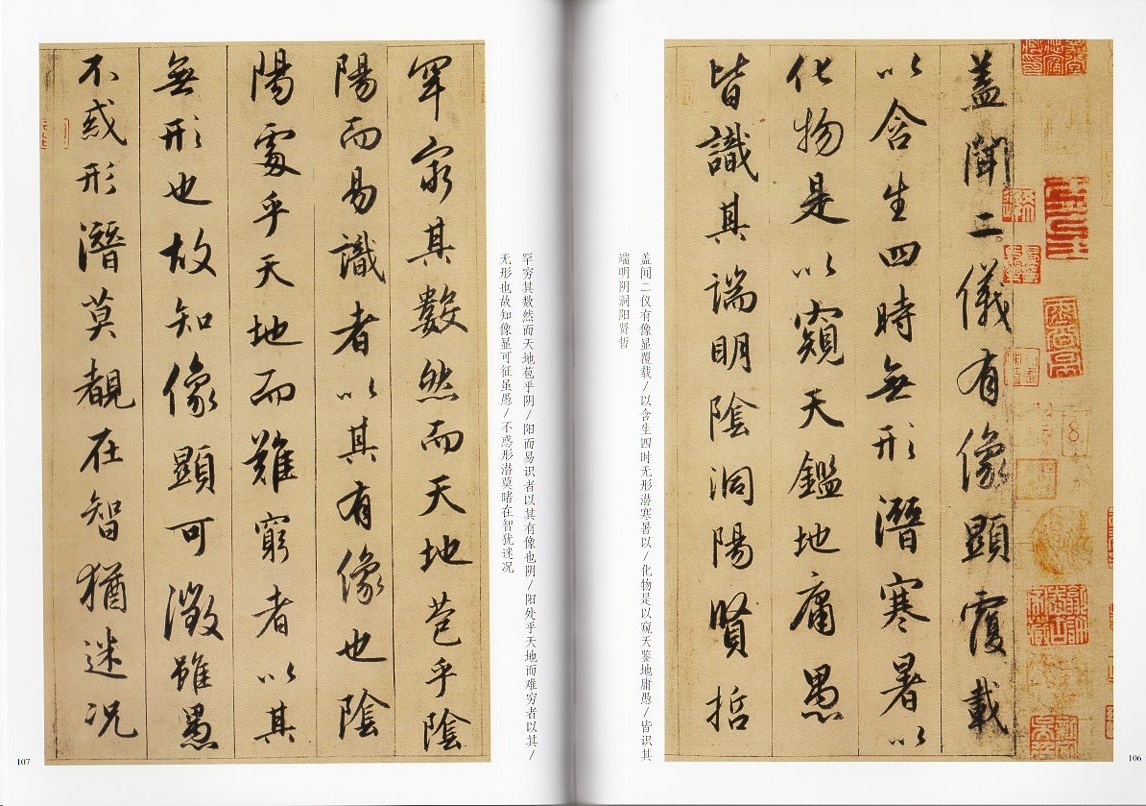 蓋聞二儀有像顯覆載
以含生四時無形潛寒暑以
化物是以窺天鑑地庸愚
皆識其端明陰洞陽賢哲
盖闻二仪有像显覆载/以含生四时无形潜寒暑以/化物是以窥天鉴地庸愚/皆识其
端明阴洞阳贤哲
106
罕窮其數然而天地苞乎陰
陽而易識者以其有像也陰
陽處乎天地而難窮者以其
無形也故知像顯可徵雖愚
不惑形潛莫覩在智猶迷况
罕穷其数然而天地苞乎阴/阳而易识者以其有像也阴/阳处乎天地而难穷者以其/
无形也故知像显可征虽愚/不惑形潜莫睹在智犹迷况
107